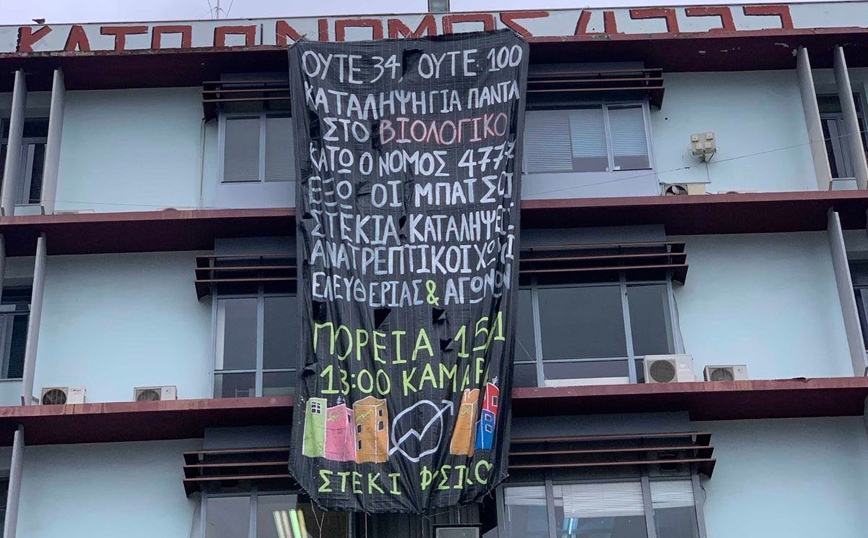 ΚΑΤΩ Ο ΝΟΜΟΣ 4777
ΟΥΤΕ 34, ΟΥΤΕ 100
ΚΑΤΑΛΗΨΗ ΓΙΑ ΠΑΝΤΑ
ΣΤΟ ΒΙΟΛΟΓΙΚΟ
ΚΑΤΩ Ο ΝΟΜΟΣ 4777
ΕΞΩ ΟΙ ΜΠΑΤΣΟΙ
ΣΤΕΚΙΑ ΚΑΤΑΛΗΨΕΙ
ΑΝΑΤΡΕΠΤΙΚΟΙ ΧΩΡΟΙ
ΕΛΕΥΘΕΡΙΑΣ & ΑΓΩΝΩΝ
ΠΟΡΕΙΑ 151
13:00 ΚΑΜΑΡ
ΣΤΕΚΙ ΦΥΣΙΚΟ